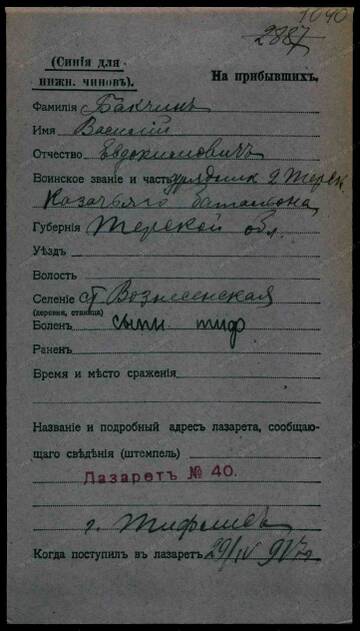 1040
2887
(Синія для
нижн. чиновъ).
На прибывшихъ.
Фамилія Бакчинъ
Имя Василій
Отчество Евдокимовичъ
Воинское званіе и часть урядник 2 Терск.
Казачьяго батальона
Губернія Терской обл.
Уѣздъ
Волость
Селеніе ст. Вознесенская
(деревня, станица)
Боленъ сыпн. тиф
Раненъ
Время и мѣсто сраженія
Названіе и подробный адресъ лазарета, сообщаю-
щаго свѣдѣнія (штемпель)
Лазаретъ № 40.
г. Тифлисъ
Когда поступилъ въ лазаретъ 29/IV 917 г.